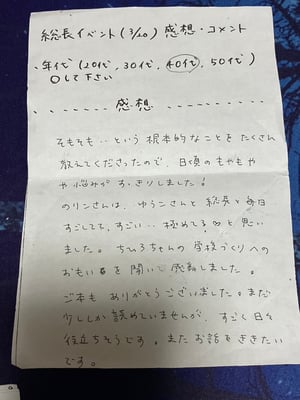 総長イベント(3/20) 感想・コメント
・年代(20代, 30代, 40代, 50代)
○して下さい
感想
そもそも…という根本的なことをたくさん
教えてくださったので、日頃のもやもや
や悩みがすっきりしました!
のりンさんは、ゆうこさんと総長と毎日
すごしてて、すごい…極めてる∞と思い
ました。ちひろちゃんの学校づくりへの
おもいを聞いて感動しました。
ご本も ありがとうございました。まだ
少ししか読めていませんが、すごく日々
役立ちそうです。またお話をききたい
です。